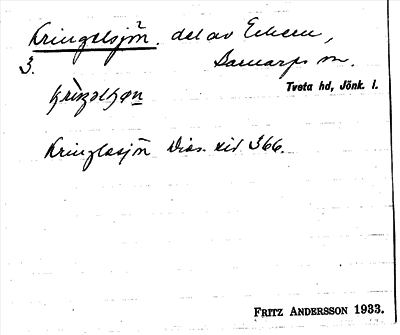 Kringelsjön. del av Eckern,
3. Barnarps sn.
Tveta hd, Jönk. l.
Kringlasjön Dias. sid. 366.
FRITZ ANDERSSON 1933.